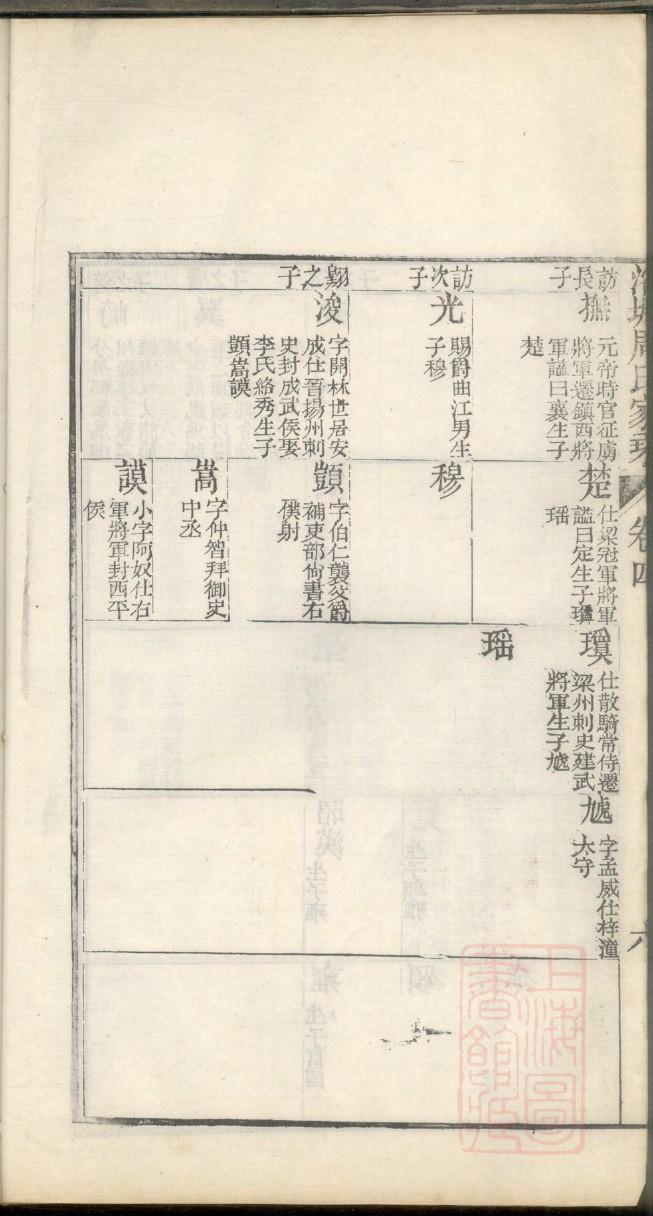 周氏家乘
卷四
六
訪長子
撫
元帝時官征虜
將軍遷鎮西將
軍謚曰襄生子
楚
楚
仕梁冠軍將軍
謚曰定生子瓊
瑶
瓊
仕散騎常侍遷
梁州刺史建武
將軍生子虓
虓
字孟威仕梓潼
太守
瑶
訪次子
光
賜爵曲江男生
子穆
穆
之子
浚
字開林世居安
成仕晉揚州刺
史封成武侯娶
李氏絡秀生子
顗嵩謨
顗
字伯仁襲父爵
補吏部尙書右
僕射
嵩
字仲智拜御史
中丞
謨
小字阿奴仕右
軍將軍封西平
侯
上海圖書館藏